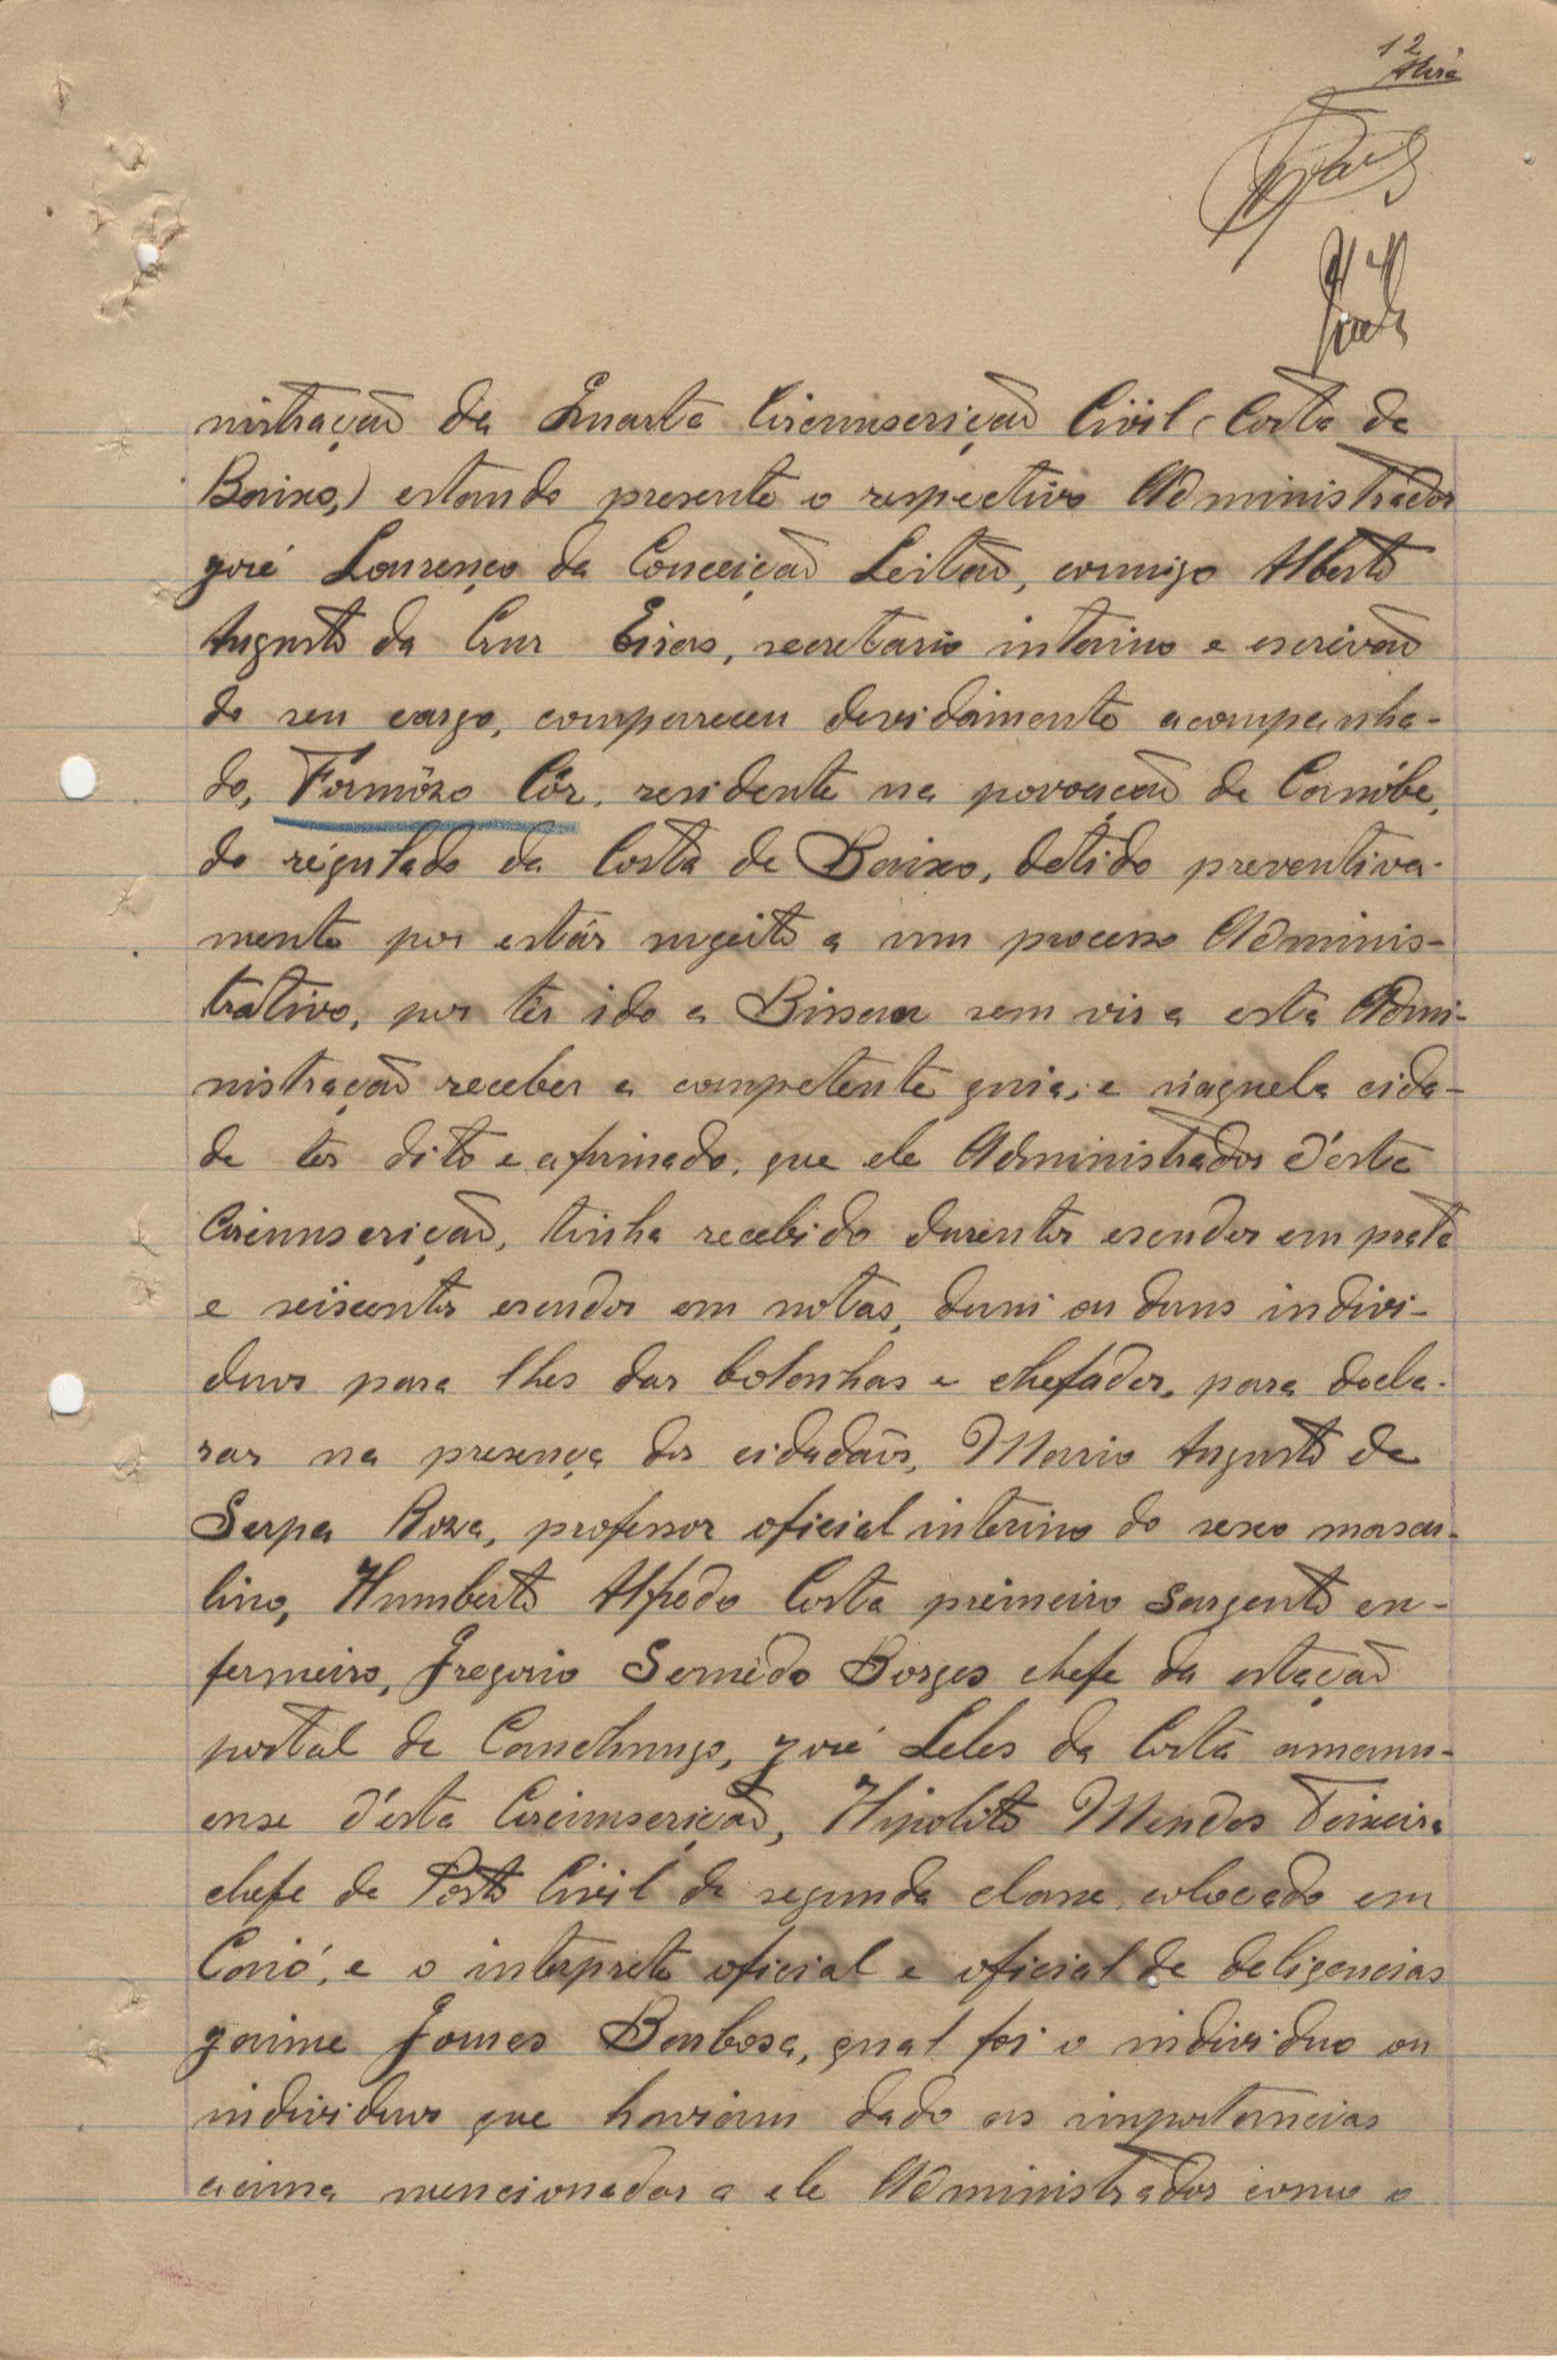 12
nistração da Quarta Circunscrição Civil (Costa de
Baixo,) estando presente o respectivo Administrador
José Lourenço da Conceição Leitão, comigo Alberto
Augusto da Cruz Eiras, secretario interino e escrivão
do seu cargo, compareceu devidamente acompanha-
do, Formôzo Côr, residente na povoação de Canóbe,
do régulado da Costa de Baixo, detido preventiva-
mente por estár sugeito a um processo Adminis-
trativo, por têr ido a Bissau sem vir a esta Admi-
nistração receber a competente guia, e n'aquela cida-
de ter dito e afirmado, que ele Administrador d'ésta
Circunscrição, tinha recebido duzentos escudos em prata
e seiscentos escudos em notas, dum ou duns indivi-
duos para lhes dar bolanhas e chefados, para decla-
rar na presença dos cidadãos, Mario Augusto de
Serpa Roza, professor oficial interino do sexo mascu-
lino, Humberto Alfredo Costa primeiro Sargento en-
fermeiro, Gregorio Semêdo Borges chefe da estação
postal de Canchungo, José Leles da Costa amanu-
ense d'ésta Circunscrição, Hipolito Mendes Teixeira
chefe de Posto Civil de segunda classe, colocado em
Caió, e o interprete oficial e oficial de deligencias
Jaime Gomes Barbosa, qual foi o individuo ou
individuos que haviam dado as importancias
acima mencionadas a ele Administrador como o